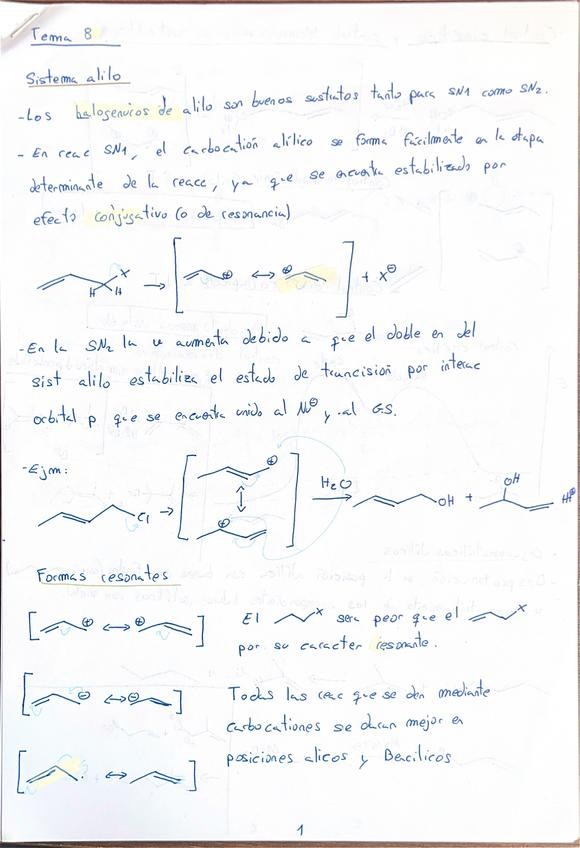 Tema 8
Sistema alilo
-Los halogenuros de alilo son buenos sustratos tanto para SN1 como SN2.
- En reac SN1, el carbocatión alílico se forma fácilmente en la etapa
determinante de la reacc, ya que se encuentra estabilizado por
efecto conjugativo (o de resonancia)
X
H H → [ ⊕ ↔ ⊕ ] + X⊖
-En la SN2 la v aumenta debido a que el doble en del
sist alilo estabiliza el estado de trancisión por interac
orbital p que se encuentra unido al Nu⊖ y al G.S.
-Ejm:
Cl → [ ⊕ ↕ ⊕ ] H2O → OH + OH H⊕
Formas resonates
[ ⊕ ↔ ⊕ ]
El X sera peor que el X
por su caracter resonante.
[ ⊖ ↔ ⊖ ]
Todas las reac que se den mediante
carbocationes se daran mejor en
posiciones alicos y Bencilicos
[ · ↔ · ]
1